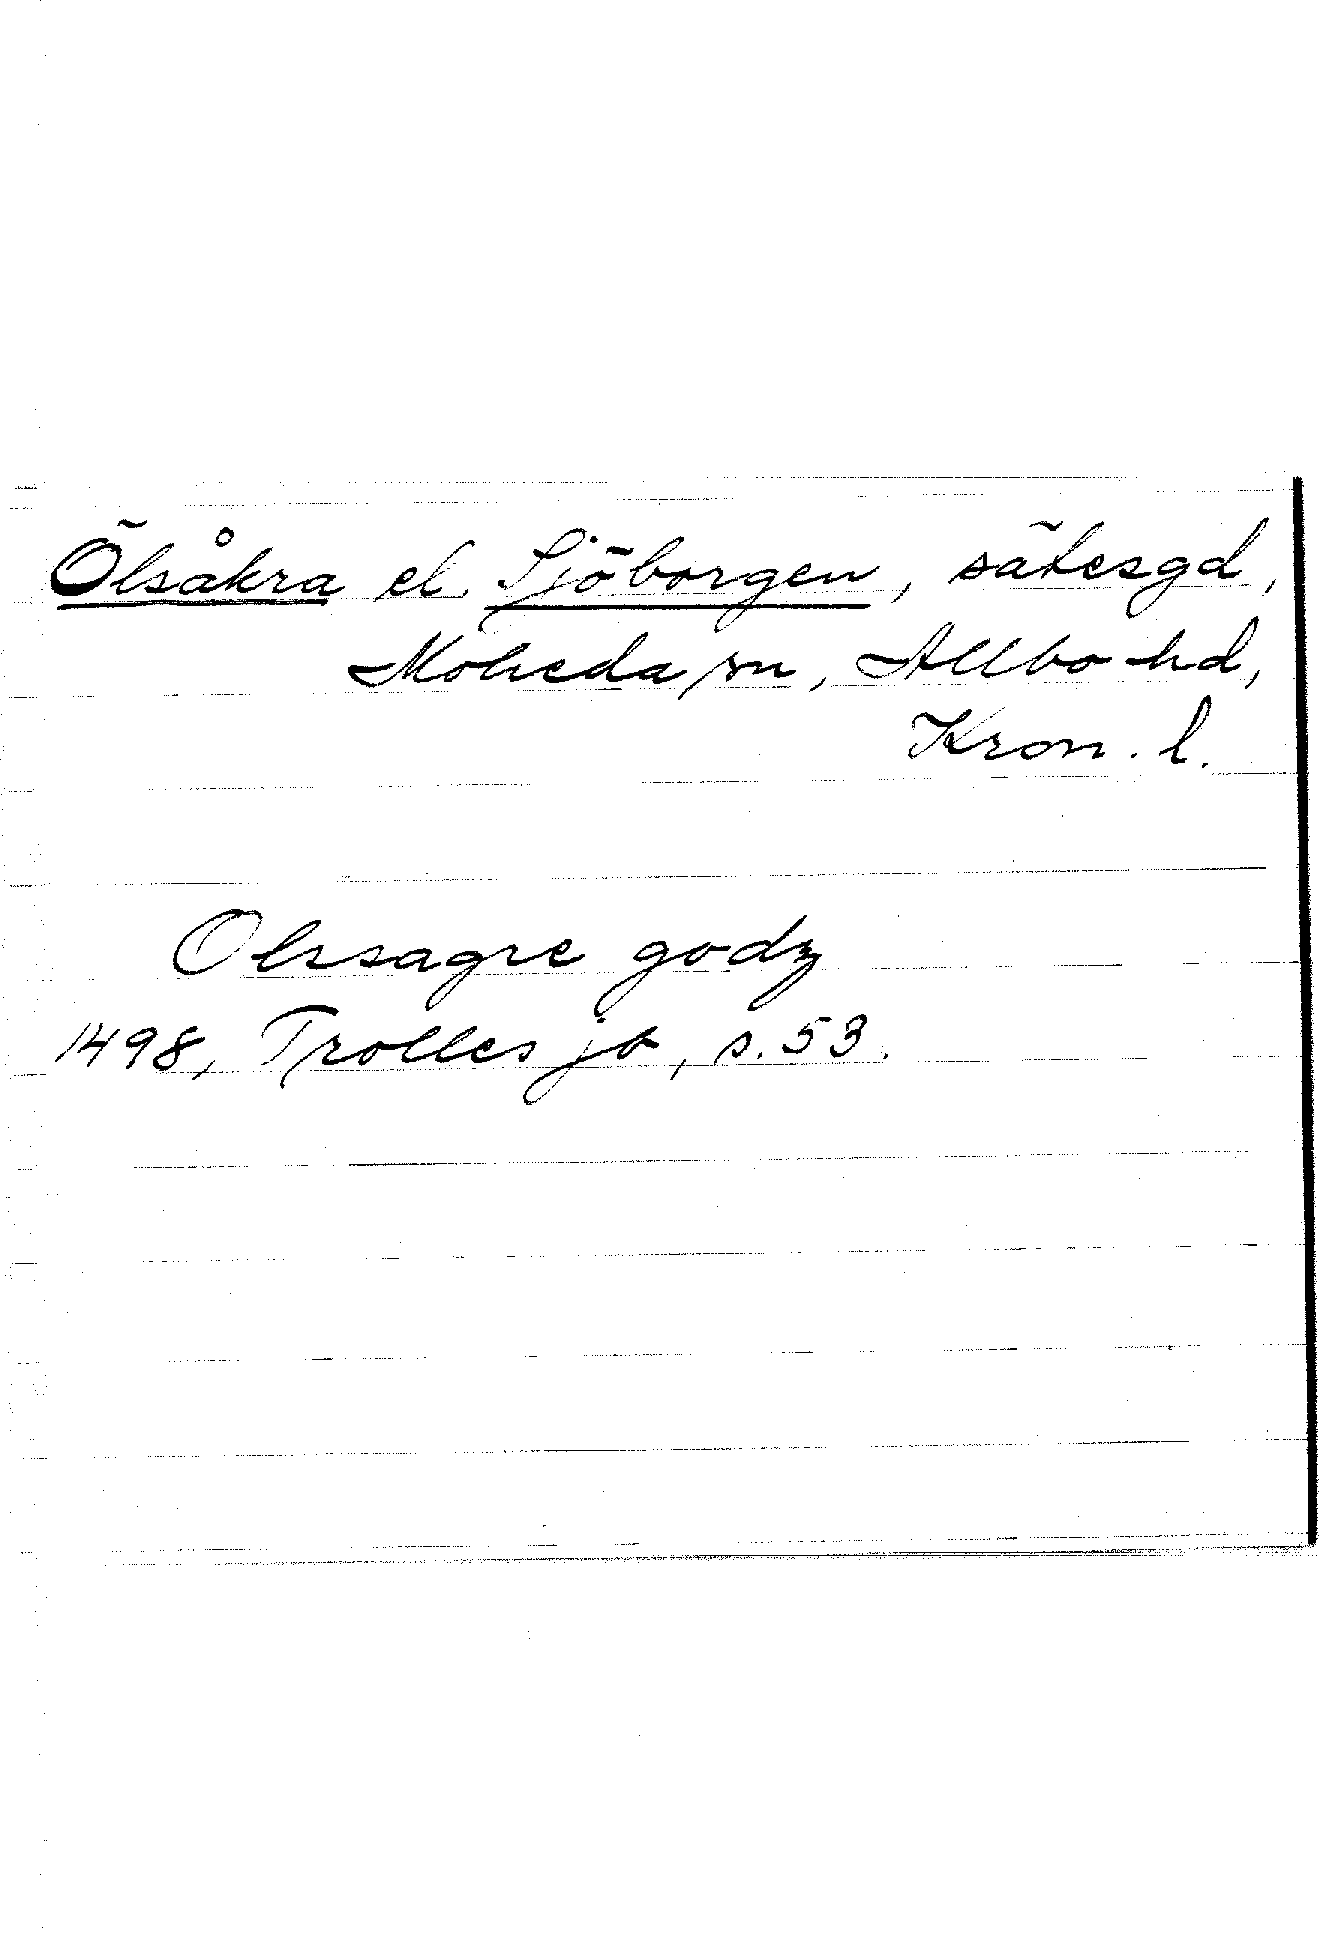 Ölsåkra el. Sjöborgen, sätesgd,
Moheda sn, Allbo hd,
Kron. l.
Olssagre godz
1498, Trolles jb, s. 53.